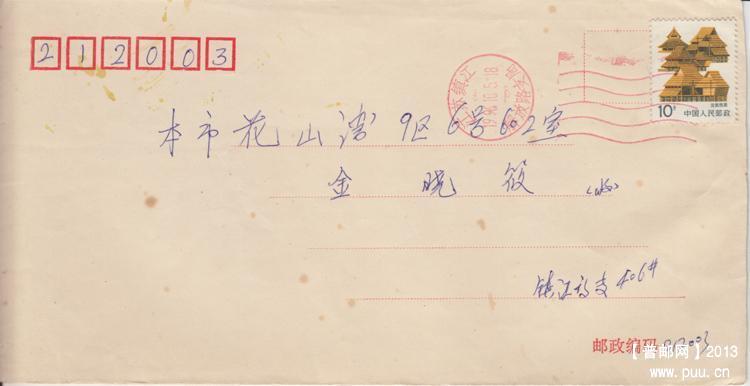 212003
江苏镇江
10
中国人民邮政
本市花山湾9区6号602室
金晓筱(收)
镇江
406#
邮政编码 212003
【普邮网】2013
www.puu.cn